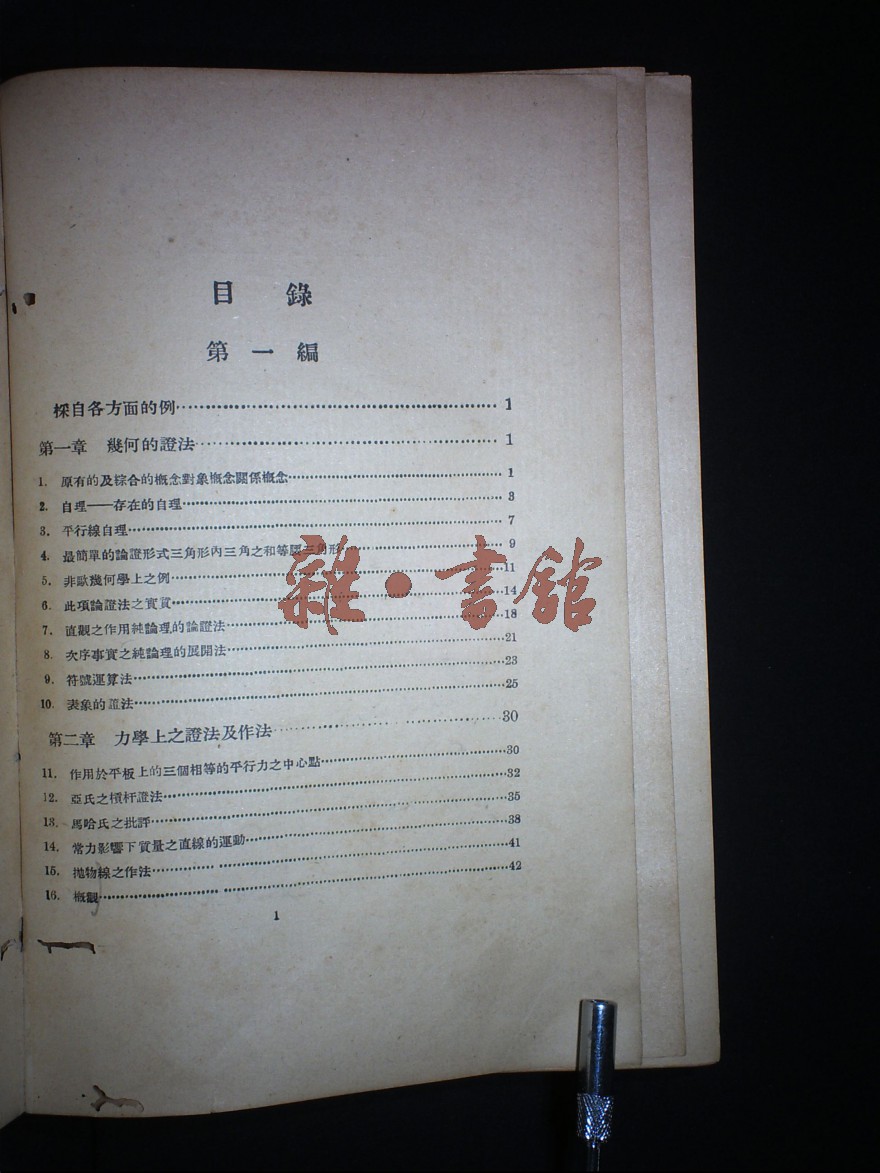 目錄
第一編
採自各方面的例 1
第一章 幾何的證法 1
1. 原有的及綜合的概念對象概念關係概念 1
2. 自理——存在的自理 3
3. 平行線自理 7
4. 最簡單的論證形式三角形內三角之和等腰三角形 9
5. 非歐幾何學上之例 11
6. 此項論證法之實質 14
7. 直觀之作用純論理的論證法 18
8. 次序事實之純論理的展開法 21
9. 符號運算法 23
10. 表象的證法 25
第二章 力學上之證法及作法 30
11. 作用於平板上的三個相等的平行力之中心點 30
12. 亞氏之槓杆證法 32
13. 馬哈氏之批評 35
14. 常力影響下質量之直線的運動 38
15. 拋物線之作法 41
16. 概觀 42
1
雜·書館